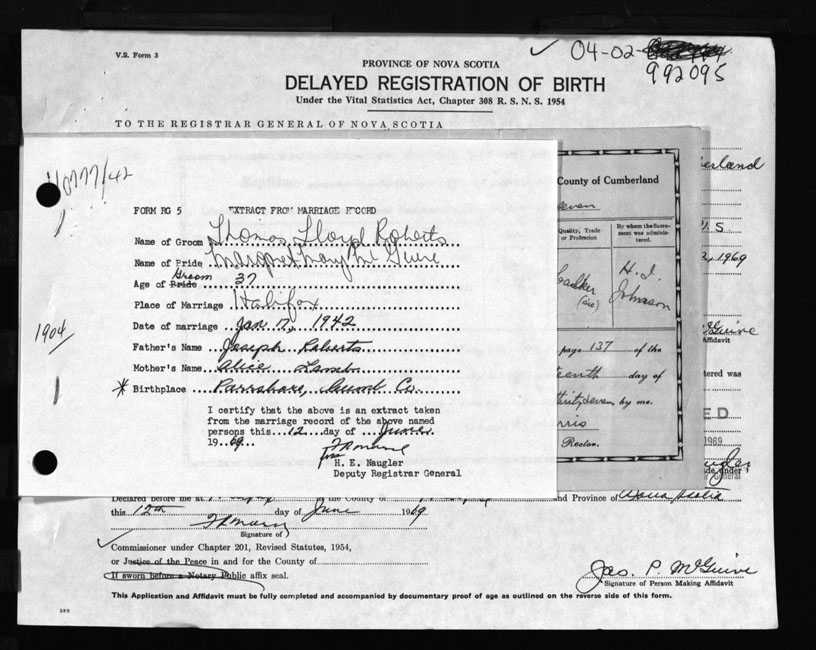 V.S. Form 3
04-02-
992095
PROVINCE OF NOVA SCOTIA
DELAYED REGISTRATION OF BIRTH
Under the Vital Statistics Act, Chapter 308 R. S. N. S. 1954
TO THE REGISTRAR GENERAL OF NOVA SCOTIA
FORM RG 5 EXTRACT FROM MARRIAGE RECORD
Name of Groom Thomas Lloyd Roberts
Name of Bride Margaret Mary McGuire
Groom
Age of Bride 37
Place of Marriage Halifax
Date of marriage Jan 17, 1942
1904
Father's Name Joseph Roberts
Mother's Name Alice
* Birthplace Parrsboro, Cumb Co.
I certify that the above is an extract taken
from the marriage record of the above named
persons this 12 day of June
1969
H. E. Naugler
Deputy Registrar General
County of Cumberland
even
Quality, Trade
or Profession
By whom the Sacra-
ment was adminis-
tered.
H. I.
Johnson
page 137 of the
teenth day of
by me.
rris
Rector.
erland
U.S
1969
McGuire
Affidavit
tered was
ED
1969
made under
General
Declared before me at the County of and Province of Nova Scotia
this 12th day of June 1969
Signature of
Commissioner under Chapter 201, Revised Statutes, 1954,
or Justice of the Peace in and for the County of
If sworn before a Notary Public affix seal.
Jas. P. McGuire
Signature of Person Making Affidavit
This Application and Affidavit must be fully completed and accompanied by documentary proof of age as outlined on the reverse side of this form.